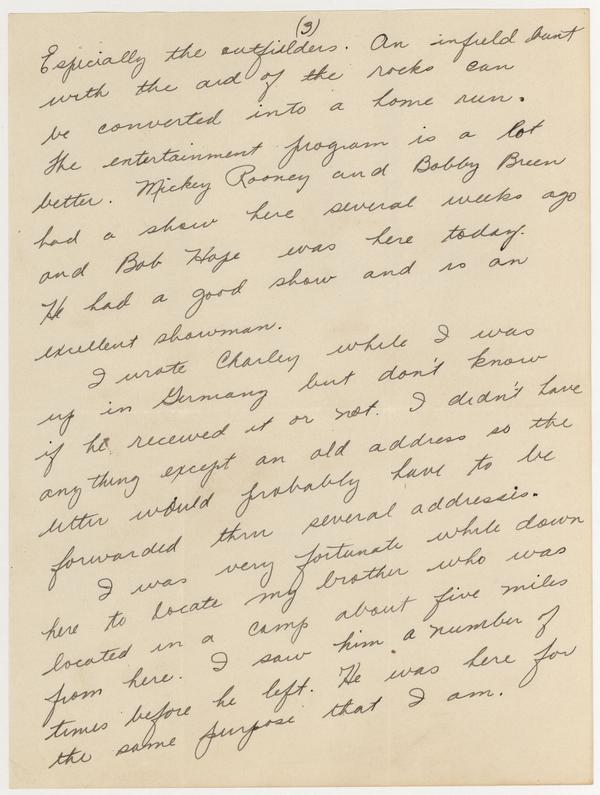 (3)
Especially the outfielders. An infield bunt
with the aid of the rocks can
be converted into a home run.
The entertainment program is a lot
better. Mickey Rooney and Bobby Breen
had a show here several weeks ago
and Bob Hope was here today.
He had a good show and is an
excellent showman.
I wrote Charley while I was
up in Germany but don't know
if he received it or not. I didn't have
anything except an old address so the
letter would probably have to be
forwarded thru several addresses.
I was very fortunate while down
here to locate my brother who was
located in a camp about five miles
from here. I saw him a number of
times before he left. He was here for
the same purpose that I am.